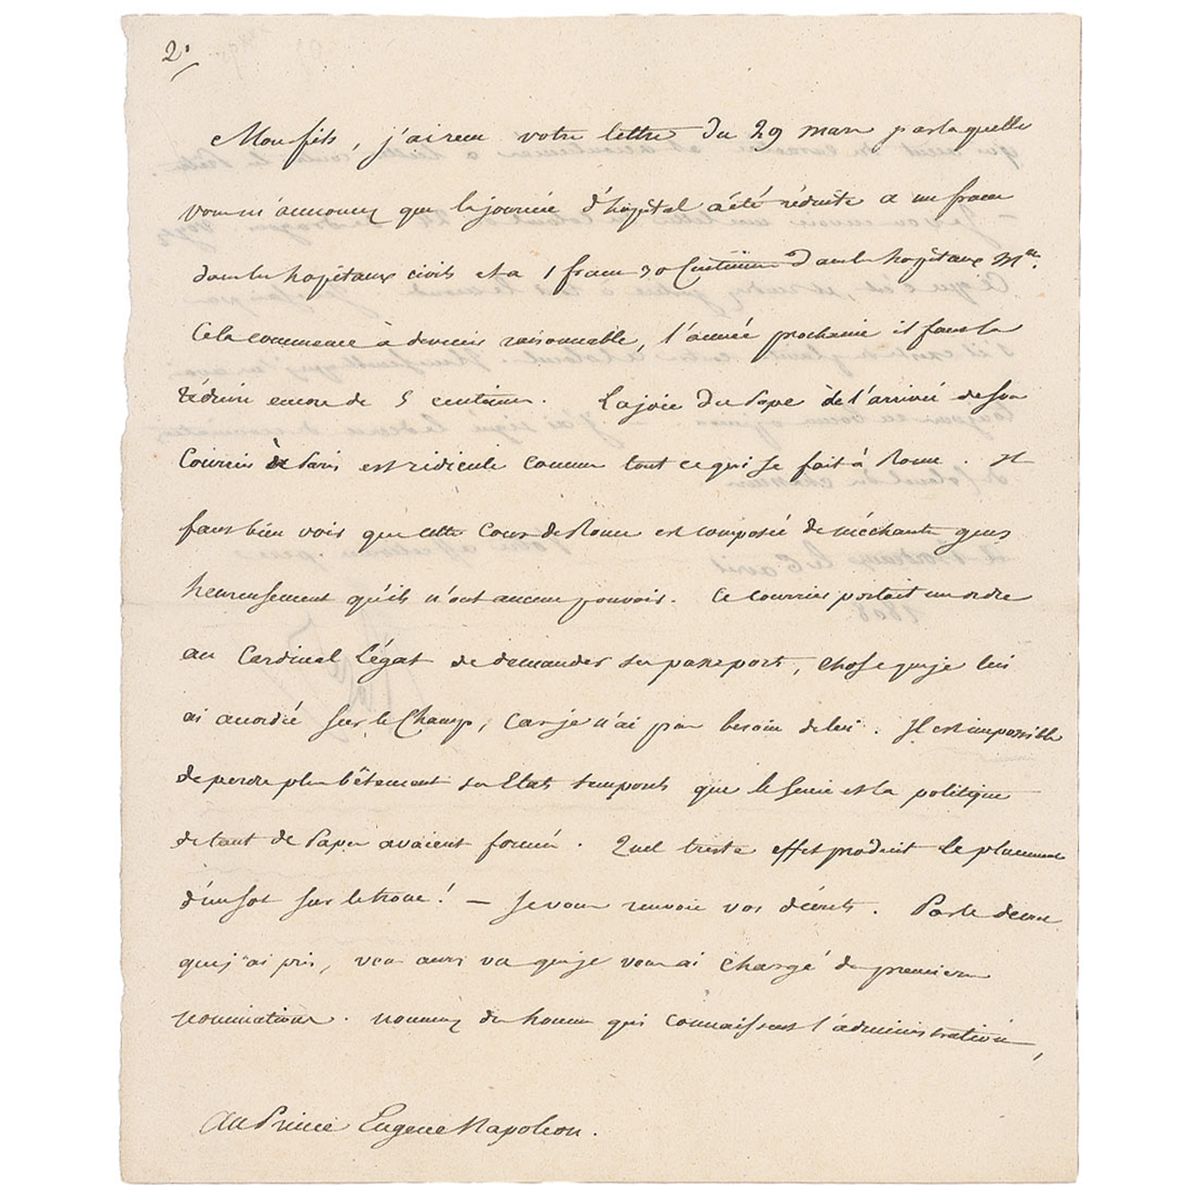 2.
Mon fils, j'ai reçu votre lettre du 29 mars par laquelle
vous m'annoncez que la journée d'hôpital a été réduite a un franc
dans les hopitaux civils et a 1 franc 30 Centimes dans les hopitaux Mres.
Cela commence à devenir raisonnable, l'année prochaine il faut la
réduire encore de 5 centimes. La joie du Pape de l'arrivé de son
Courrier de Paris est ridicule comme tout ce qui se fait à Rome. Il
faut bien voir que cette Cour de Rome est composée de méchants gens
heureusement qu'ils n'ont aucun pouvoir. Ce courrier portait un ordre
au Cardinal Légat de demander son passeport, chose que je lui
ai accordée sur le Champ, car je n'ai pas besoin de lui. Il est impossible
de perdre plus bêtement son Etats temporels que le Genie et la politique
de tant de Papes avaient formés. Quel triste effet produit le placement
d'un sot sur le trone! — Je vous renvoie vos décrets. Par le décret
que j'ai pris, vous aurez vu que je vous ai chargé des premieres
nominations. nommez des hommes qui connaissent l'administration,
Au Prince Eugene Napoleon.